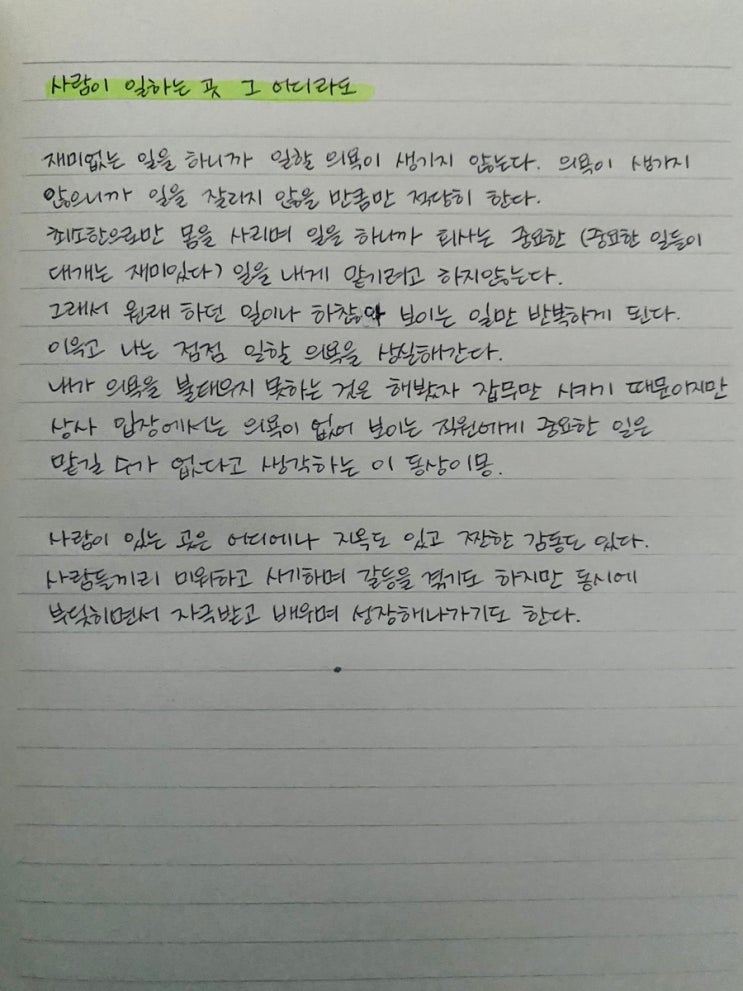 사람이 일하는 곳 그 어디라도
재미없는 일을 하니까 일할 의욕이 생기지 않는다. 의욕이 생기지
않으니까 일을 잘리지 않을 만큼만 적당히 한다.
최소한으로만 몸을 사리며 일을 하니까 회사는 중요한 (중요한 일들이
대개는 재미있다) 일을 내게 맡기려고 하지않는다.
그래서 원래 하던 일이나 하찮아 보이는 일만 반복하게 된다.
이윽고 나는 점점 일할 의욕을 상실해간다.
내가 의욕을 불태우지 못하는 것은 해봤자 잡무만 시키기 때문이지만
상사 입장에서는 의욕이 없어 보이는 직원에게 중요한 일은
맡길 수가 없다고 생각하는 이 동상이몽.
사람이 있는 곳은 어디에나 지옥도 있고 짠한 감동도 있다.
사람들끼리 미워하고 시기하며 갈등을 겪기도 하지만 동시에
부딪히면서 자극받고 배우며 성장해나가기도 한다.